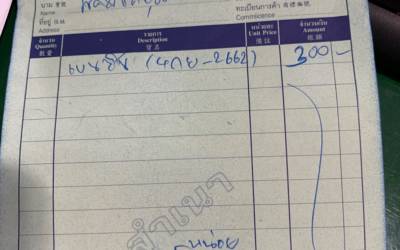 นาม 寶號
ที่อยู่ 住址
Address
ทะเบียนการค้า 商標編號
Commercence
จำนวน
Quantity
數量
รายการ
Description
貨名
หน่วยละ
Unit Price
價話
จำนวนเงิน
Amount
銀額
เบนซิน (4กย-2662) 300-
สำเนา